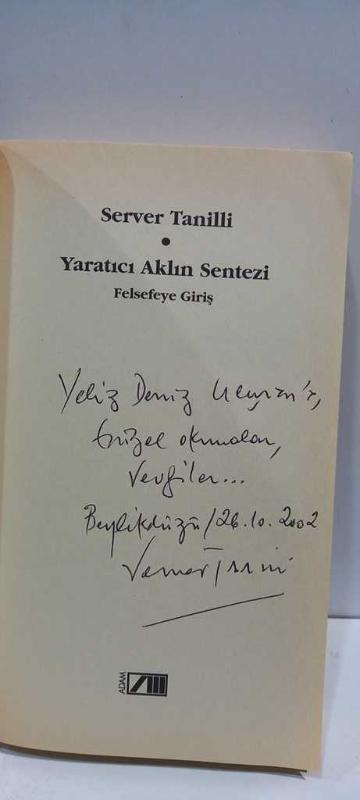 Server Tanilli
•
Yaratıcı Aklın Sentezi
Felsefeye Giriş
Yeliz Deniz
güzel okumalar,
Sevgiler...
Beylikdüzü/26.10.2002
Server Tanilli
ADAM